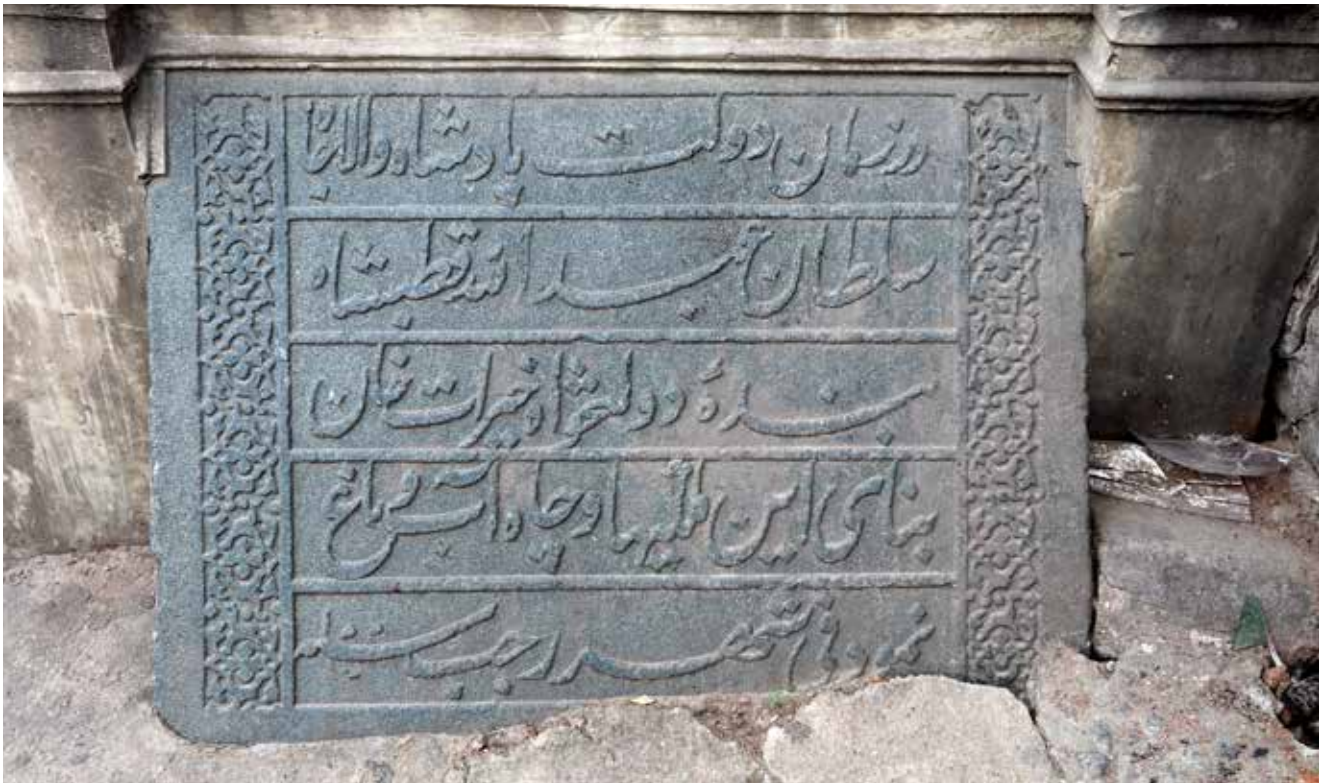 در زمان دولت پادشاه والاجاه
سلطان عبدالله قطبشاه
بندهٔ دولتخواه خیرات خان
بنای این و چاه آب و باغ
نمود فی شهر رجب سنه